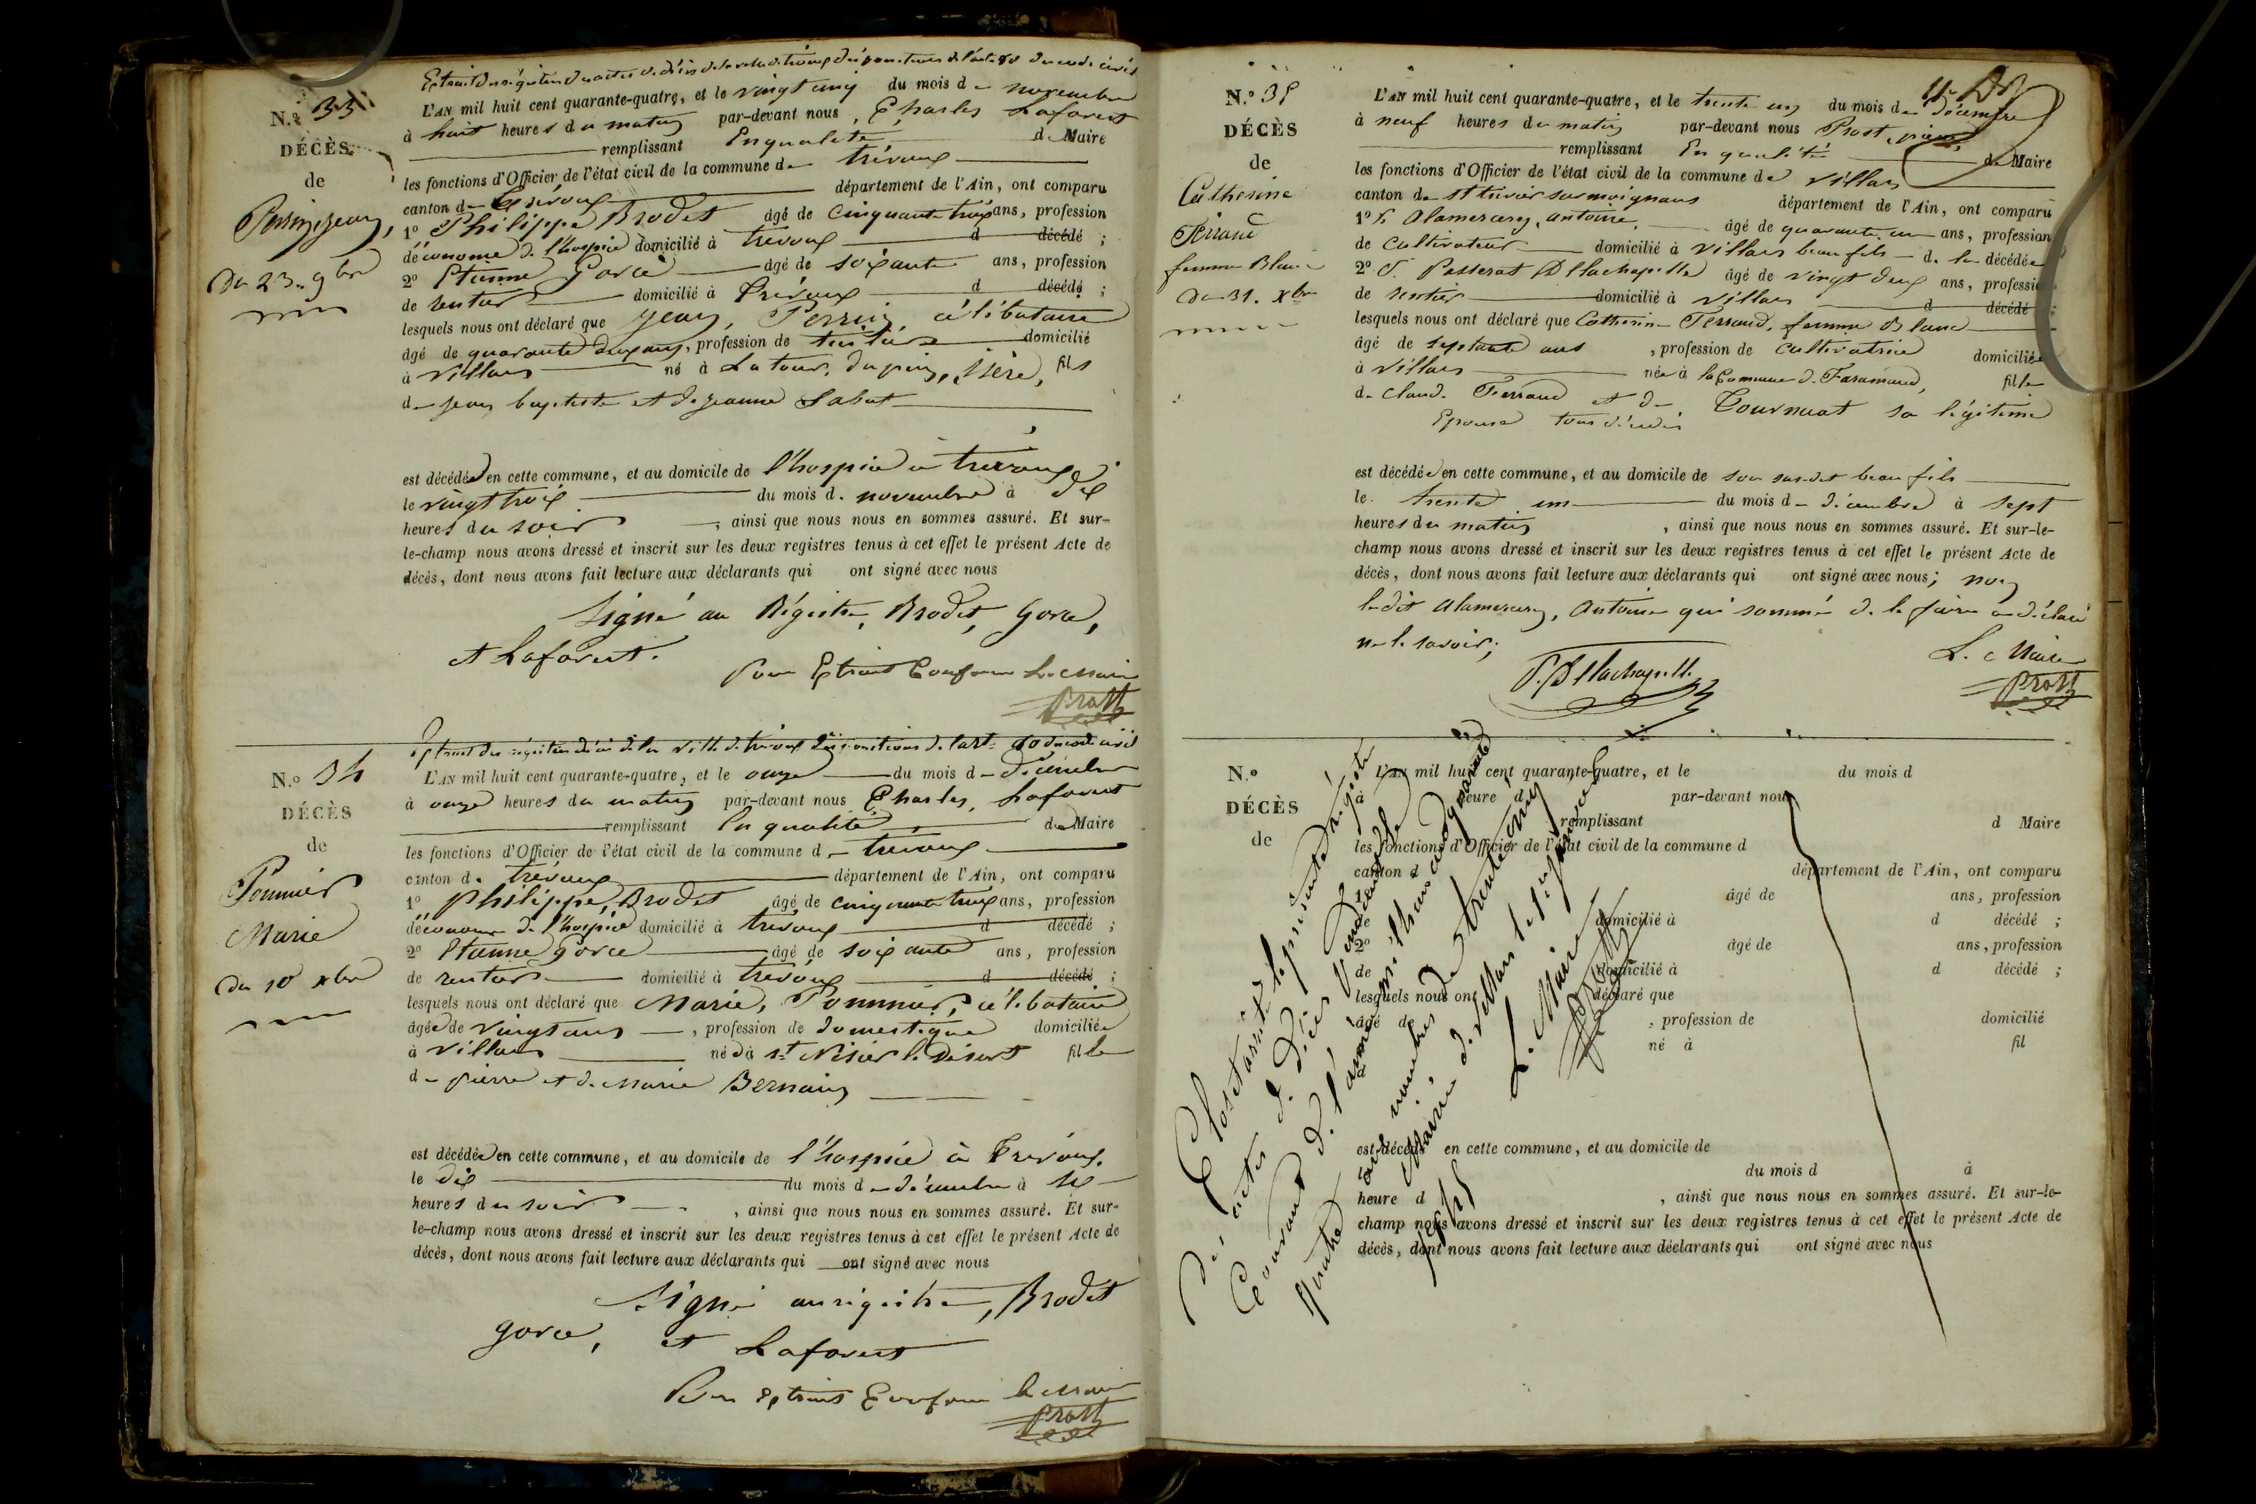 Extrait des régistres des actes de décès de la ville de trévoux dispositions de l'art 80 du code civil
N.º 33
L'AN mil huit cent quarante-quatre, et le vingt cinq du mois de novembre
à huit heures du matin par-devant nous, Charles Laforest
DÉCÈS
remplissant En qualité de Maire
de
les fonctions d'Officier de l'état civil de la commune de trévoux
canton de trévoux département de l'Ain, ont comparu
Perrin, jean,
1º Philippe Brodet âgé de cinquante trois ans, profession
d'économe de l'hospice domicilié à trévoux d décédé ;
du 23. 9bre
2º Etienne Gorce âgé de soixante ans, profession
de rentier domicilié à trévoux d décédé ;
lesquels nous ont déclaré que jean, Perrin célibataire
âgé de quarante deux ans, profession de domicilié
à Villars né à Latour, dupin, isère, fils
de jean baptiste et de jeanne Labat
est décédé en cette commune, et au domicile de l'hospice à trévoux
le vingt trois du mois d. novembre à dix
heures du soir, ainsi que nous nous en sommes assuré. Et sur-
le-champ nous avons dressé et inscrit sur les deux registres tenus à cet effet le présent Acte de
décès, dont nous avons fait lecture aux déclarants qui ont signé avec nous
Signé au Régistre, Brodet, Gorce,
et Laforest.
Pour Extrait Conforme Le Maire
Prost
Extrait des régistres décès de la ville de trévoux dispositions de l'art. 80 du code civil
N.º 34
L'AN mil huit cent quarante-quatre, et le onze du mois de décembre
à onze heures du matin par-devant nous Charles, Laforest
DÉCÈS
remplissant En qualité de Maire
de
les fonctions d'Officier de l'état civil de la commune d trévoux
canton d. trévoux département de l'Ain, ont comparu
Pommier
1º Philippe, Brodet âgé de cinquante trois ans, profession
Marie
d'économe de l'hospice domicilié à trévoux d décédé ;
2º Etienne Gorce âgé de soixante ans, profession
du 10 xbre
de rentier domicilié à trévoux d décédé ;
lesquels nous ont déclaré que Marie, Pommier, célibataire
âgée de vingt ans, profession de domestique domiciliée
à Villars née à st Nisier le désert fille
de pierre et de Marie Bernain
est décédée en cette commune, et au domicile de l'hospice à Trévoux.
le dix du mois de décembre à six
heures du soir, ainsi que nous nous en sommes assuré. Et sur-
le-champ nous avons dressé et inscrit sur les deux registres tenus à cet effet le présent Acte de
décès, dont nous avons fait lecture aux déclarants qui ont signé avec nous
Signé au régistre, Brodet
gorce, et Laforest
Pour Extrait Conforme le Maire
Prost
N.º 35
L'AN mil huit cent quarante-quatre, et le trente un du mois de décembre
à neuf heures du matin par-devant nous Prost, pierre,
DÉCÈS
remplissant En qualité de Maire
de
les fonctions d'Officier de l'état civil de la commune de Villars
Catherine
canton de st trivier sur moignans département de l'Ain, ont comparu
Ferrand
1º Alamercery, antoine, âgé de quarante un ans, profession
de cultivateur domicilié à Villars beau fils de la décédée
femme Blanc
2º P. Passerat Dellachapelle âgé de vingt deux ans, profession
du 31. xbre
de rentier domicilié à Villars d décédé ;
lesquels nous ont déclaré que Catherine Ferrand, femme Blanc
âgé de septante ans, profession de cultivatrice domiciliée
à Villars née à la Commune de Faramand, fille
de Claude Ferrand et de Tournuat sa légitime
Epouse tous décédés
est décédée en cette commune, et au domicile de son susdit beau fils
le trente un du mois de décembre à sept
heures du matin, ainsi que nous nous en sommes assuré. Et sur-le-
champ nous avons dressé et inscrit sur les deux registres tenus à cet effet le présent Acte de
décès, dont nous avons fait lecture aux déclarants qui ont signé avec nous; non
ledit Alamercery, Antoine qui sommé de le faire a déclaré
ne le savoir;
P. Dellachapelle
Le Maire
Prost
N.º
L'AN mil huit cent quarante-quatre, et le du mois d
DÉCÈS
à heure d par-devant nous
remplissant d Maire
de
les fonctions d'Officier de l'état civil de la commune d
canton d département de l'Ain, ont comparu
1º âgé de ans, profession
de domicilié à d décédé ;
2º âgé de ans, profession
de domicilié à d décédé ;
lesquels nous ont déclaré que
âgé de , profession de domicilié
à né à fil
est décédé en cette commune, et au domicile de
le du mois d à
heure d , ainsi que nous nous en sommes assuré. Et sur-le-
champ nous avons dressé et inscrit sur les deux registres tenus à cet effet le présent Acte de
décès, dont nous avons fait lecture aux déclarants qui ont signé avec nous
Clos et arrêté le présent régistre
des actes de décès pendant le
Courant de l'année mil huit cent quarante
quatre au nombre de trente cinq
Mairie de Villars le 1er janvier
1845
Le Maire
Prost